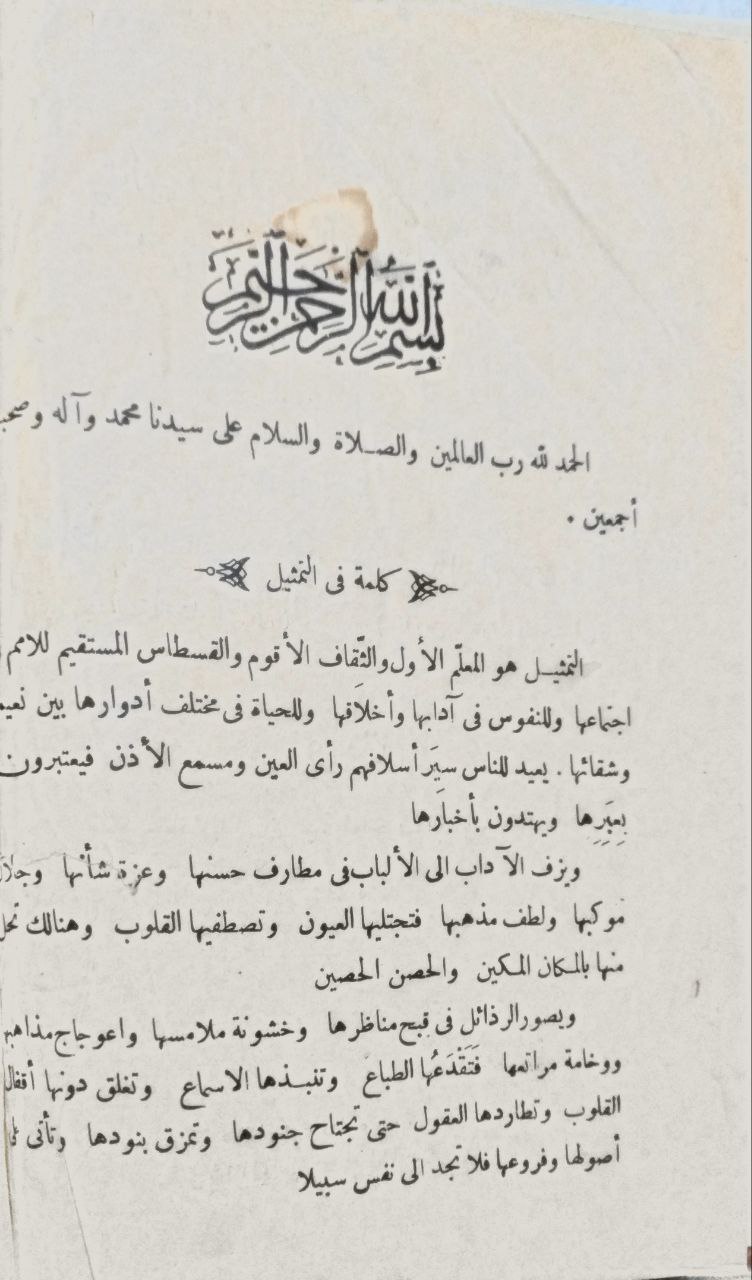 بسم الله الرحمن الرحيم
الحمد لله رب العالمين والصلاة والسلام على سيدنا محمد وآله
أجمعين .
كلمة فى التمثيل
التمثيل هو المعلّم الأول والثّقاف الأقوم والقسطاس المستقيم للامم
اجتماعها وللنفوس فى آدابها وأخلاقها وللحياة فى مختلف أدوارها بين
وشقائها . يعيد للناس سيَر أسلافهم رأى العين ومسمع الأذن فيعتبرون
بِعبَرِها ويهتدون بأخبارها
ويزف الآداب الى الألباب فى مطارف حسنها وعزة شأنها
موكبها ولطف مذهبها فتجتليها العيون وتصطفيها القلوب وهنالك
منها بالمكان المكين والحصن الحصين
ويصور الرذائل فى قبح مناظرها وخشونة ملامسها واعوجاج
ووخامة مراتعها فَتَقْدَعُها الطباع وتنبذها الاسماع وتغلق دونها أقفال
القلوب وتطاردها العقول حتى تجتاح جنودها وتمزق بنودها وتأتى
أصولها وفروعها فلا تجد الى نفس سبيلا